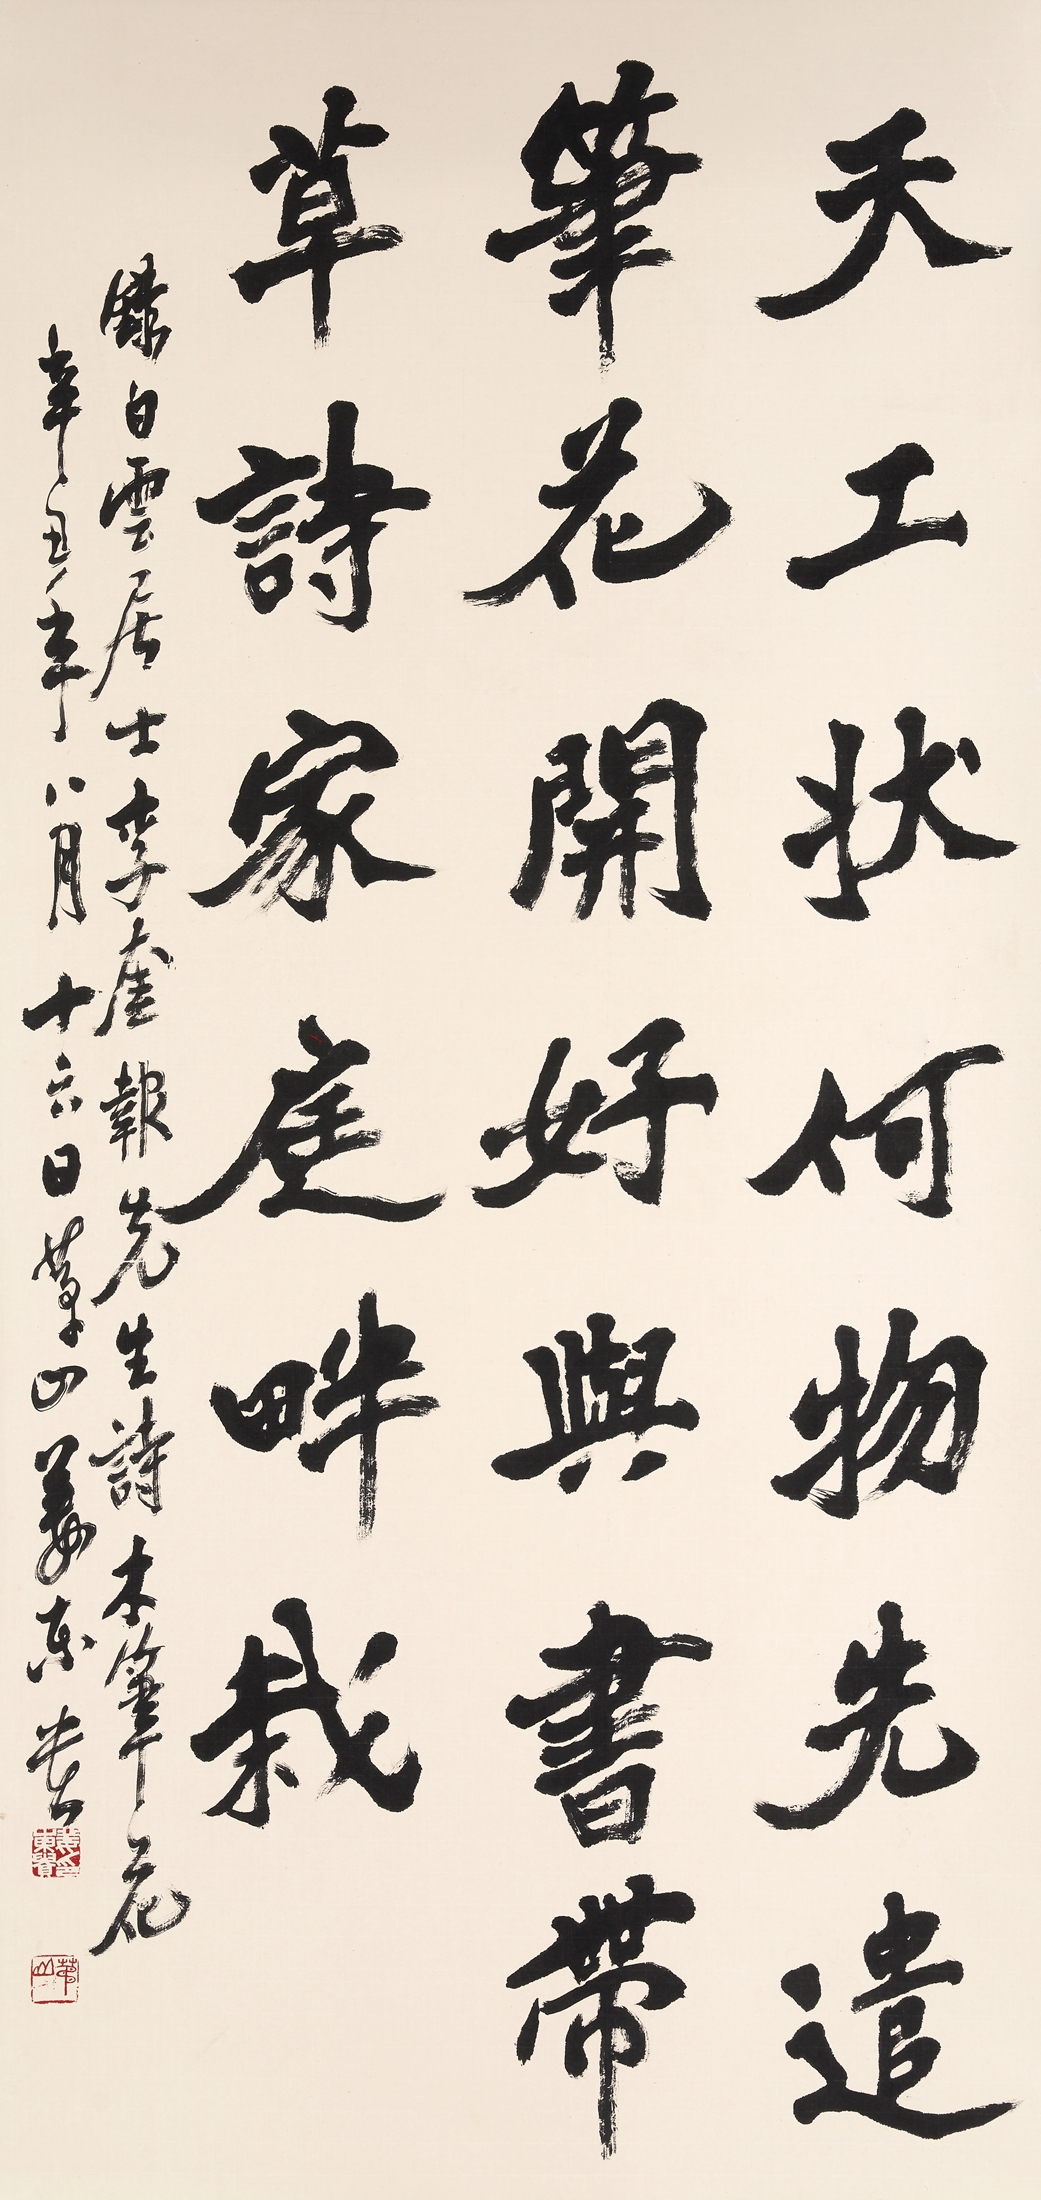 天工狀何物先遣
筆花開好與書帶
草詩家庭畔栽
錄白雲居士李奎報先生詩木筆花
辛丑年八月十六日華山姜東贊